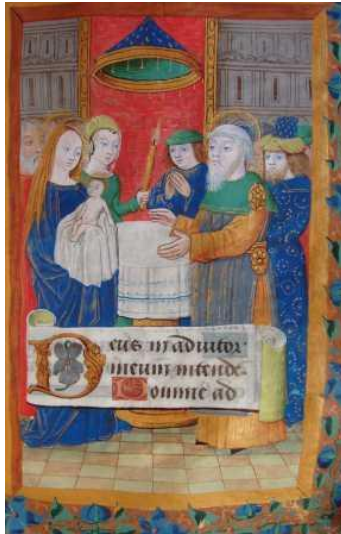 Deus in adiutor
meum intende
Domine ad